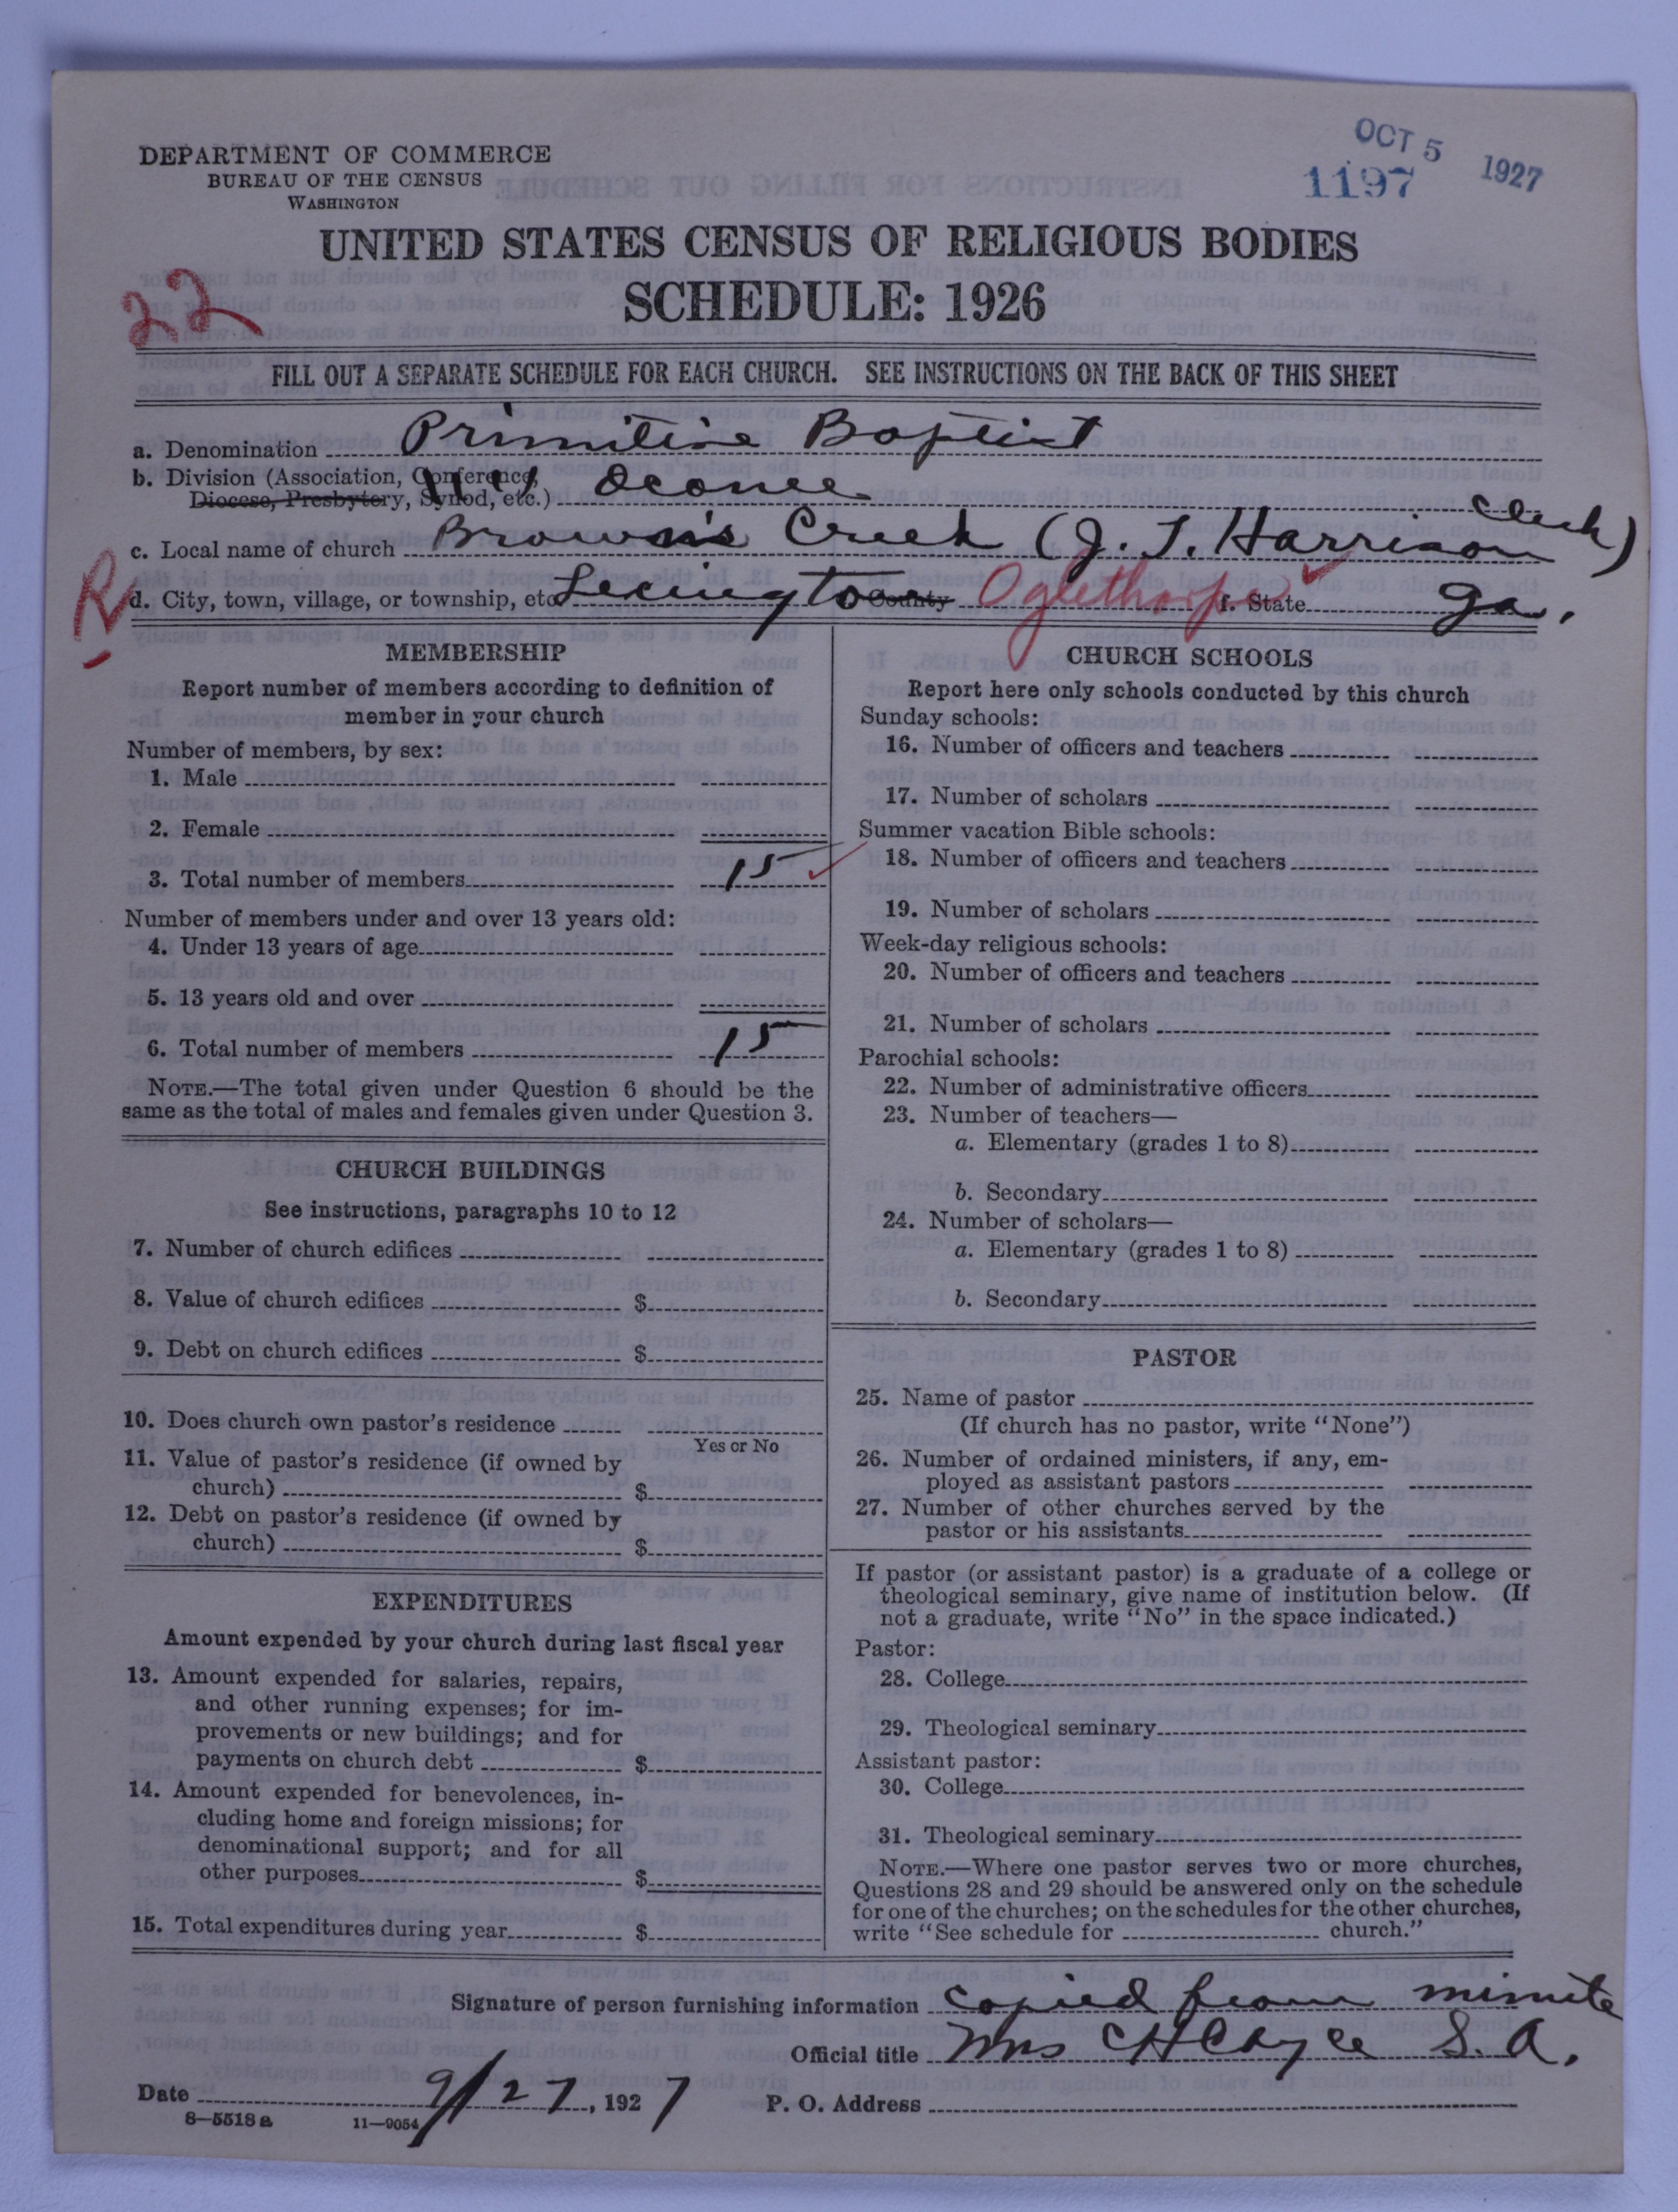 OCT 5 1927
1197
DEPARTMENT OF COMMERCE
BUREAU OF THE CENSUS
WASHINGTON
UNITED STATES CENSUS OF RELIGIOUS BODIES
22
SCHEDULE: 1926
FILL OUT A SEPARATE SCHEDULE FOR EACH CHURCH. SEE INSTRUCTIONS ON THE BACK OF THIS SHEET
a. Denomination Primitive Baptist
b. Division (Association, Conference,
Diocese, Presbytery, Synod, etc.) Oconee
c. Local name of church Brown's Creek (J. T. Harrison Clerk)
R
d. City, town, village, or township, etc. Lexington County Oglethorpe f. State Ga.
MEMBERSHIP
Report number of members according to definition of
member in your church
Number of members, by sex:
1. Male
2. Female
3. Total number of members 15
Number of members under and over 13 years old:
4. Under 13 years of age
5. 13 years old and over
6. Total number of members 15
NOTE.—The total given under Question 6 should be the
same as the total of males and females given under Question 3.
CHURCH BUILDINGS
See instructions, paragraphs 10 to 12
7. Number of church edifices
8. Value of church edifices $
9. Debt on church edifices $
10. Does church own pastor's residence
Yes or No
11. Value of pastor's residence (if owned by
church) $
12. Debt on pastor's residence (if owned by
church) $
EXPENDITURES
Amount expended by your church during last fiscal year
13. Amount expended for salaries, repairs,
and other running expenses; for im-
provements or new buildings; and for
payments on church debt $
14. Amount expended for benevolences, in-
cluding home and foreign missions; for
denominational support; and for all
other purposes $
15. Total expenditures during year $
CHURCH SCHOOLS
Report here only schools conducted by this church
Sunday schools:
16. Number of officers and teachers
17. Number of scholars
Summer vacation Bible schools:
18. Number of officers and teachers
19. Number of scholars
Week-day religious schools:
20. Number of officers and teachers
21. Number of scholars
Parochial schools:
22. Number of administrative officers
23. Number of teachers—
a. Elementary (grades 1 to 8)
b. Secondary
24. Number of scholars—
a. Elementary (grades 1 to 8)
b. Secondary
PASTOR
25. Name of pastor
(If church has no pastor, write "None")
26. Number of ordained ministers, if any, em-
ployed as assistant pastors
27. Number of other churches served by the
pastor or his assistants
If pastor (or assistant pastor) is a graduate of a college or
theological seminary, give name of institution below. (If
not a graduate, write "No" in the space indicated.)
Pastor:
28. College
29. Theological seminary
Assistant pastor:
30. College
31. Theological seminary
NOTE.—Where one pastor serves two or more churches,
Questions 28 and 29 should be answered only on the schedule
for one of the churches; on the schedules for the other churches,
write "See schedule for church."
Signature of person furnishing information Copied from minute
Official title Mrs C H Cayce S. A.
Date 9/27, 1927 P. O. Address
8—5518 a 11—9054